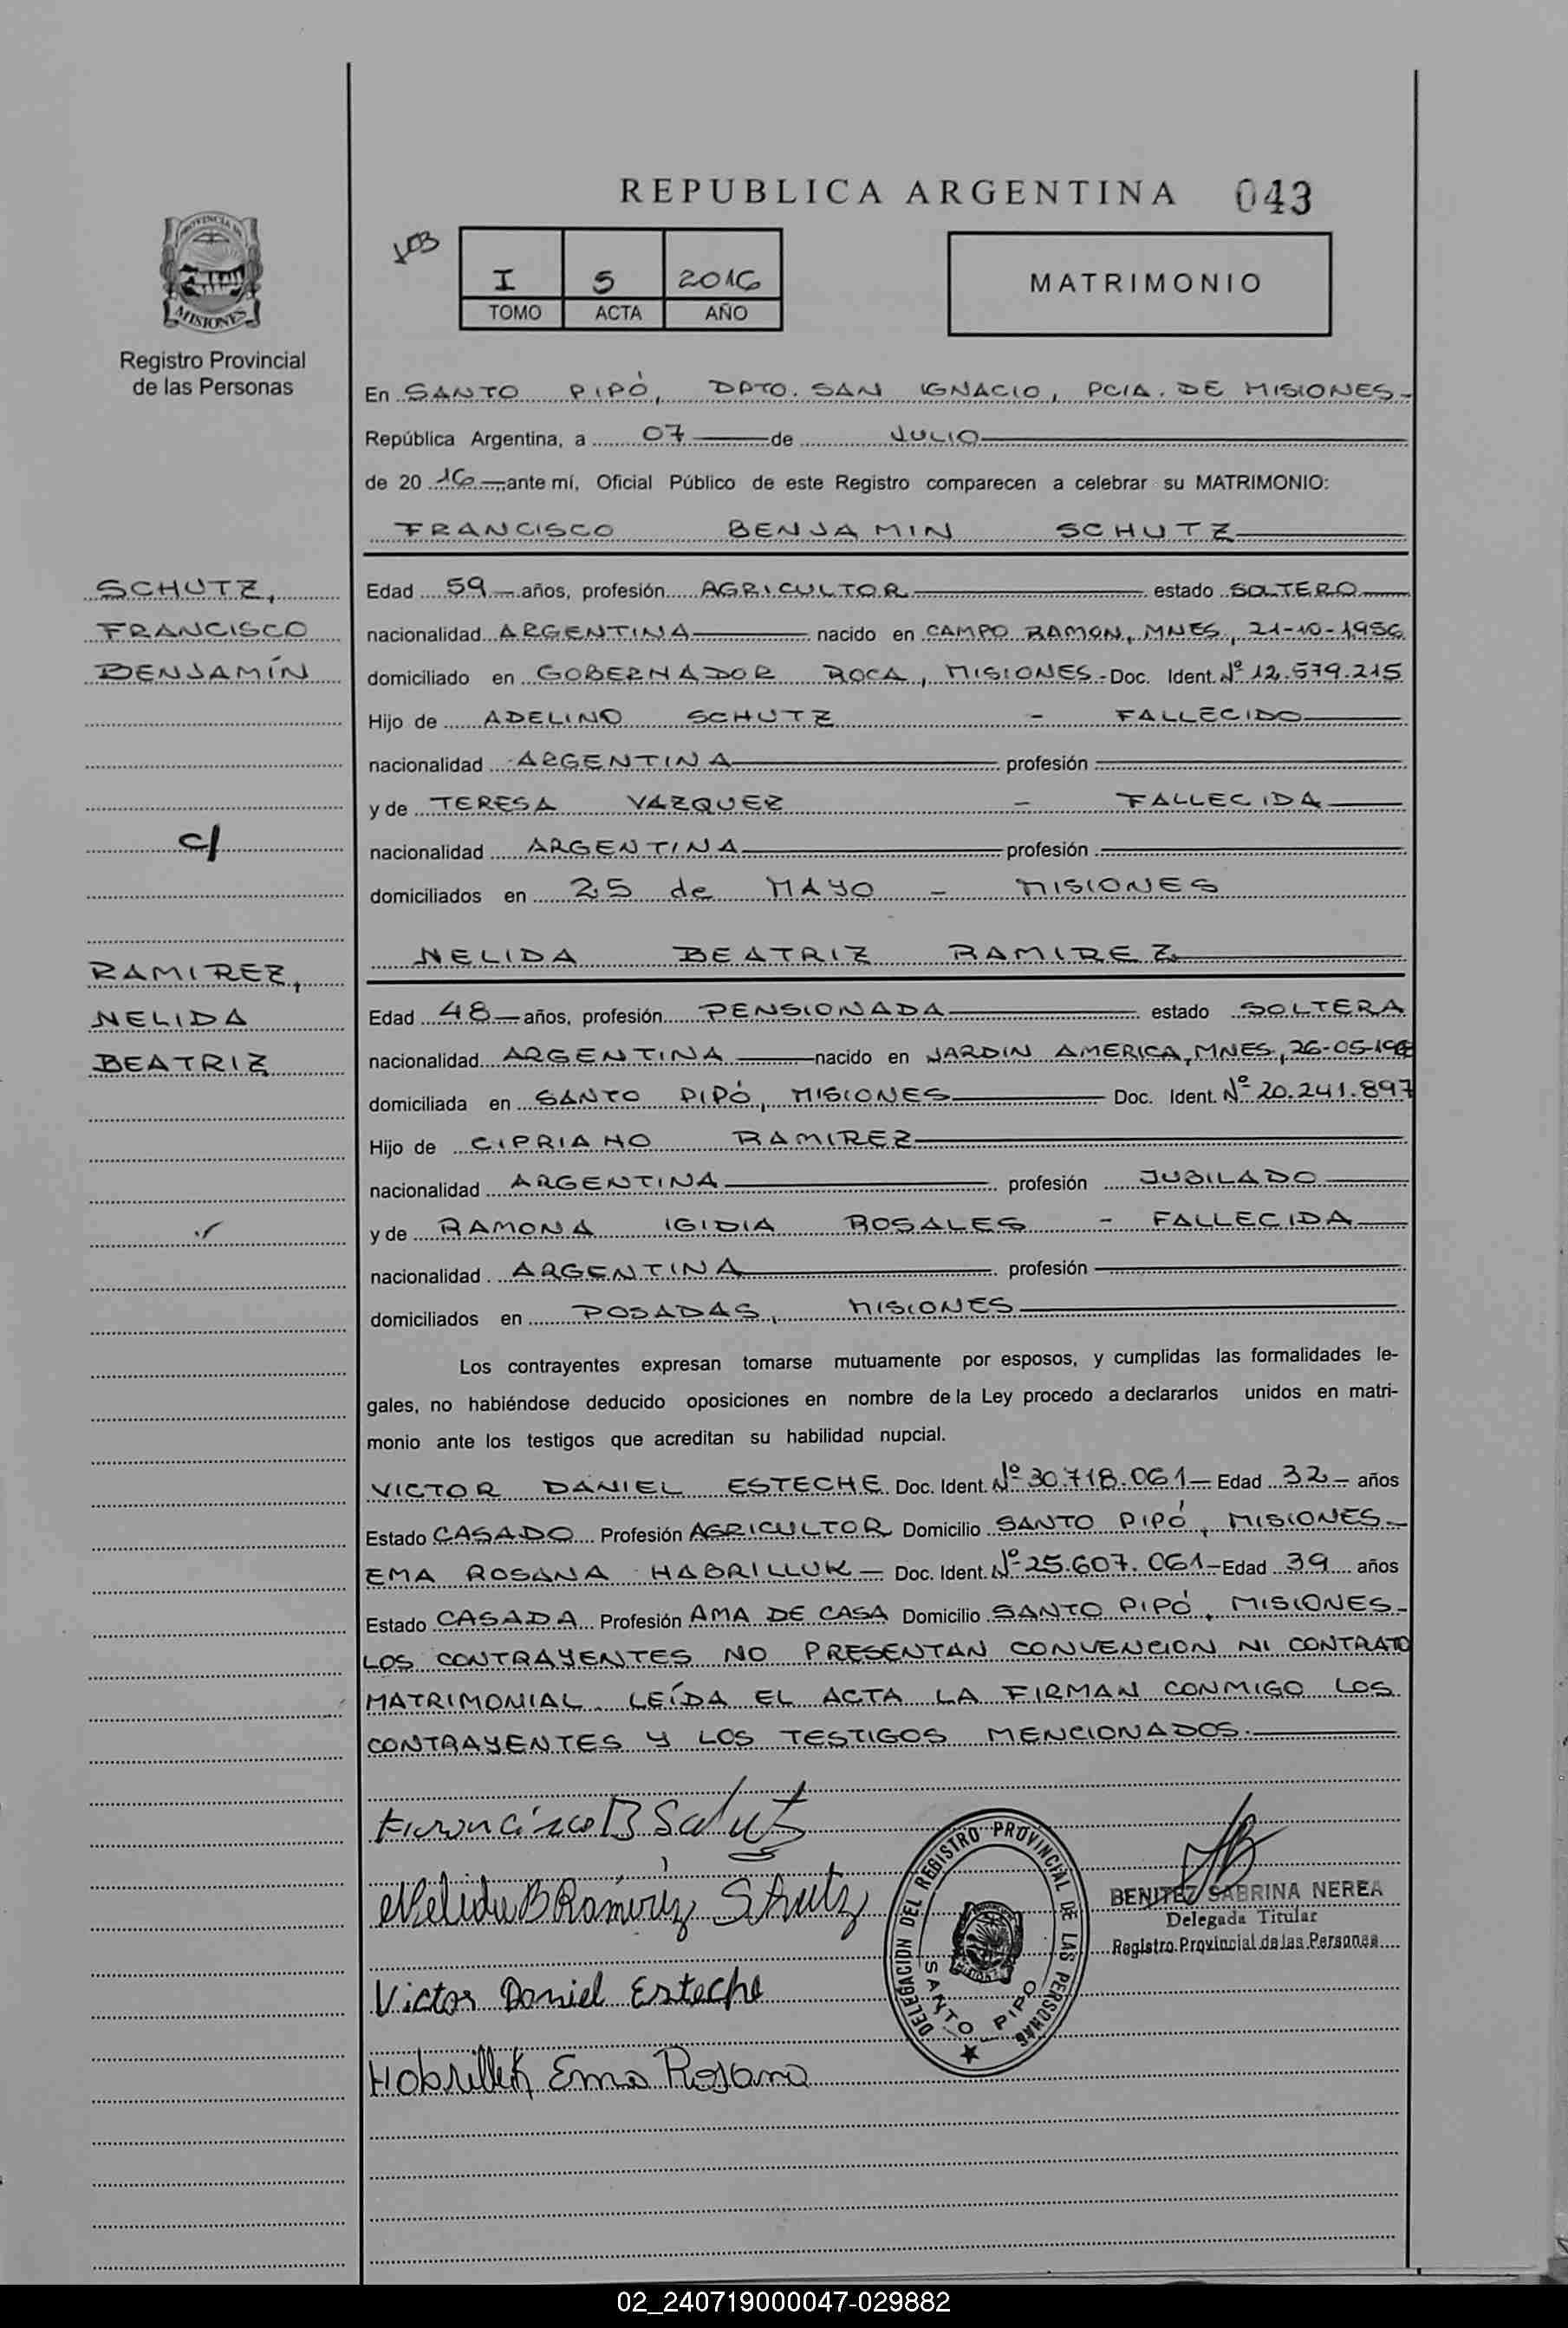 REPUBLICA ARGENTINA 043
PROVINCIA DE
MISIONES
Registro Provincial
de las Personas
103
I 5 2016
TOMO ACTA AÑO
MATRIMONIO
En SANTO PIPÓ, DPTO. SAN IGNACIO, PCIA. DE MISIONES-
República Argentina, a 07 de JULIO
de 20 16 ante mí, Oficial Público de este Registro comparecen a celebrar su MATRIMONIO:
FRANCISCO BENJAMIN SCHUTZ
SCHUTZ,
FRANCISCO
BENJAMÍN
c/
RAMIREZ,
NELIDA
BEATRIZ
Edad 59 años, profesión AGRICULTOR estado SOLTERO
nacionalidad ARGENTINA nacido en CAMPO RAMON, MNES, 21-10-1956
domiciliado en GOBERNADOR ROCA, MISIONES - Doc. Ident. Nº 12.579.215
Hijo de ADELINO SCHUTZ - FALLECIDO
nacionalidad ARGENTINA profesión
y de TERESA VAZQUEZ - FALLECIDA
nacionalidad ARGENTINA profesión
domiciliados en 25 de MAYO - MISIONES
NELIDA BEATRIZ RAMIREZ
Edad 48 años, profesión PENSIONADA estado SOLTERA
nacionalidad ARGENTINA nacido en JARDIN AMERICA, MNES, 26-05-
domiciliada en SANTO PIPÓ, MISIONES Doc. Ident. Nº 20.241.897
Hijo de CIPRIANO RAMIREZ
nacionalidad ARGENTINA profesión JUBILADO
y de RAMONA IGIDIA ROSALES - FALLECIDA
nacionalidad ARGENTINA profesión
domiciliados en POSADAS, MISIONES
Los contrayentes expresan tomarse mutuamente por esposos, y cumplidas las formalidades le-
gales, no habiéndose deducido oposiciones en nombre de la Ley procedo a declararlos unidos en matri-
monio ante los testigos que acreditan su habilidad nupcial.
VICTOR DANIEL ESTECHE Doc. Ident. Nº 30.718.061 - Edad 32 - años
Estado CASADO Profesión AGRICULTOR Domicilio SANTO PIPÓ, MISIONES-
EMA ROSANA HABRILLUK - Doc. Ident. Nº 25.607.061 - Edad 39 años
Estado CASADA Profesión AMA DE CASA Domicilio SANTO PIPÓ, MISIONES-
LOS CONTRAYENTES NO PRESENTAN CONVENCION NI CONTRATO
MATRIMONIAL. LEÍDA EL ACTA LA FIRMAN CONMIGO LOS
CONTRAYENTES Y LOS TESTIGOS MENCIONADOS.
Francisco B Schutz
Nelida B Ramirez Shutz
Victor Daniel Esteche
Habrilluk Ema Rosana
DELEGACION DEL REGISTRO PROVINCIAL DE LAS PERSONAS
SANTO PIPO
BENITEZ SABRINA NEREA
Delegada Titular
Registro Provincial de las Personas
02_240719000047-029882